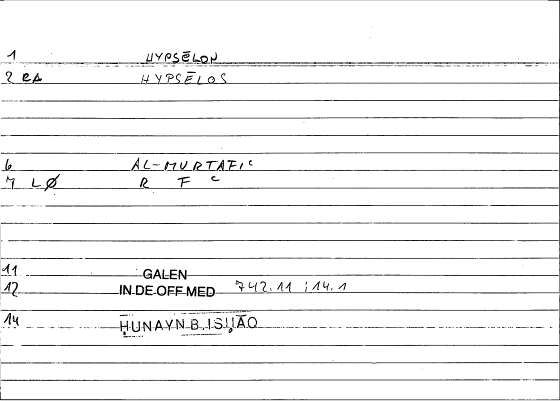 1 HYPSĒLON
2 eA HYPSĒLOS
6 AL-MURTAFIʿ
7 LØ R F ʿ
11 GALEN
12 IN.DE.OFF MED 742.11 ; 14.1
14 ḤUNAYN B. ISḤĀQ